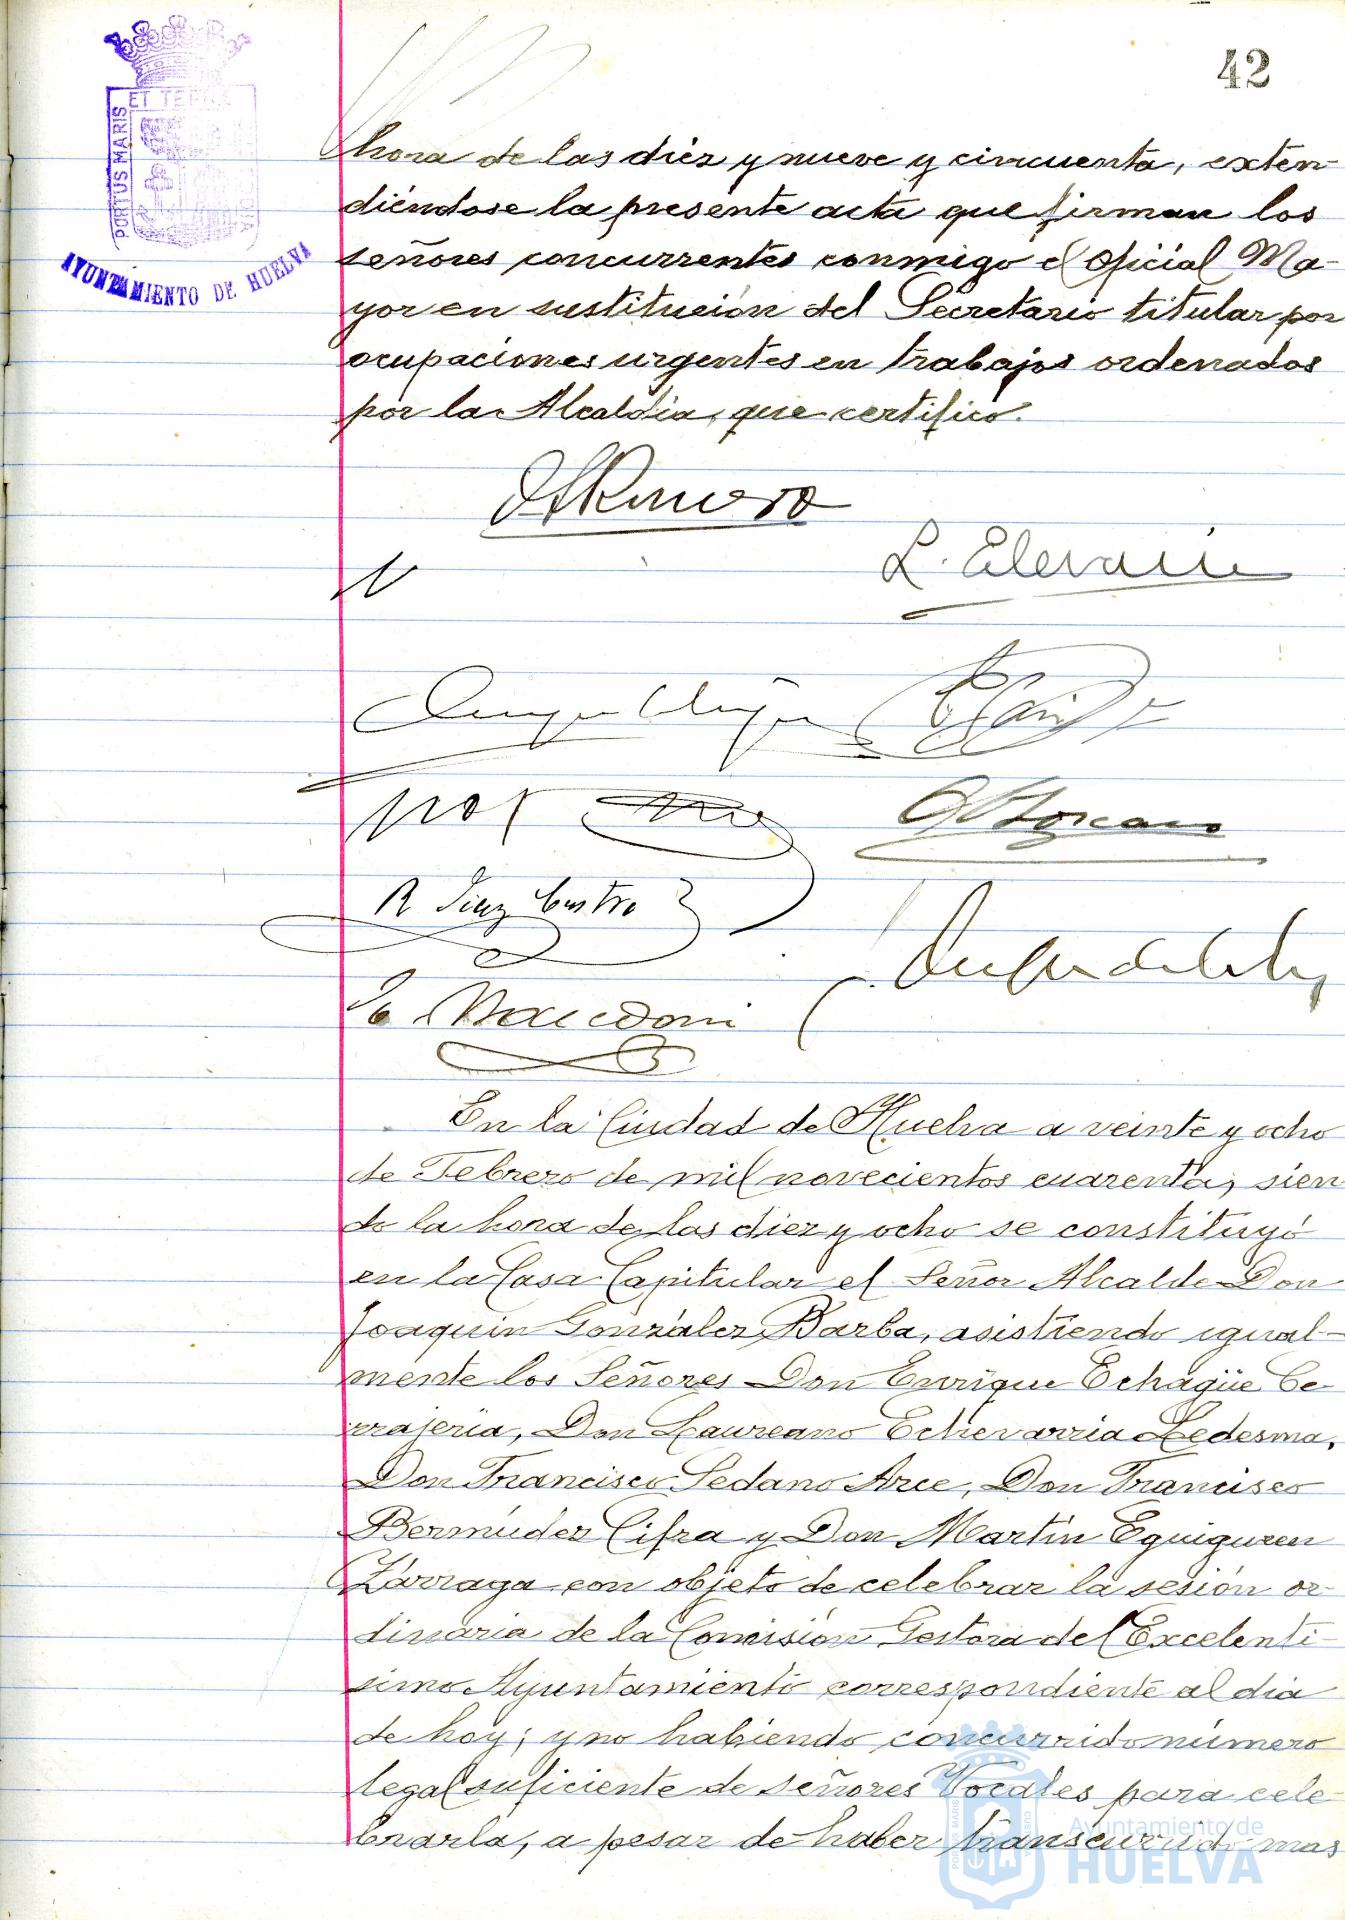 42
PORTUS MARIS ET TERRÆ CUSTODIA
AYUNTAMIENTO DE HUELVA
hora de las diez y nueve y cincuenta, exten-
diéndose la presente acta que firman los
señores concurrentes conmigo el Oficial Ma-
yor en sustitución del Secretario titular por
ocupaciones urgentes en trabajos ordenados
por la Alcaldia, que certifico.
Romero
R Diaz Castro
En la Ciudad de Huelva a veinte y ocho
de Febrero de mil novecientos cuarenta, sien
do la hora de las diez y ocho se constituyó
en la Casa Capitular el Señor Alcalde Don
Joaquin González Barba, asistiendo igual-
mente los Señores Don Enrique Echagüe Ce-
rrajeria, Don Laureano Echevarria Ledesma,
Don Francisco Sedano Arce, Don Francisco
Bermúdez Cifra y Don Martín Eguiguren
Zárraga con objeto de celebrar la sesión or-
dinaria de la Comisión Gestora del Excelenti-
simo Ayuntamiento correspondiente al dia
de hoy; y no habiendo concurrido número
legal suficiente de señores Vocales para cele-
brarla, a pesar de haber transcurrido mas
Ayuntamiento de
HUELVA